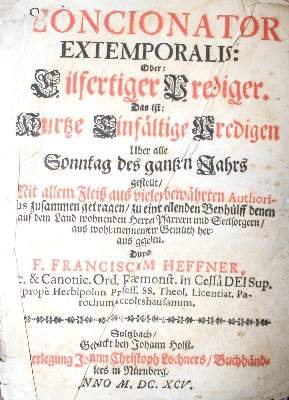 CONCIONATOR
EXTEMPORALIS:
Oder:
Eilfertiger Prediger.
Das ist:
Kurtze Einfältige Predigen
Uber alle
Sonntag des gantzen Jahrs
gestellt/
Mit allem Fleiß aus vielen bewährten Authori-
bus zusammen getragen/ zu einer eilenden Beyhülff denen
auf dem Land wohnenden Herren Pfarrern und Seelsorgern/
aus wohlmeynenden Gemüth her-
aus gegeben.
Durch
F. FRANCISCUM HEFFNER,
& Canonic. Ord. Præmonst. in Cella DEI Sup.
propè Herbipolim Professum SS. Theol. Licentiat. Pa-
rochum
Sultzbach/
Gedruckt bey Johann Holst.
Verlegung Johann Christoph Lochners/ Buchhänd-
lers in Nürnberg.
ANNO M. DC. XCV.